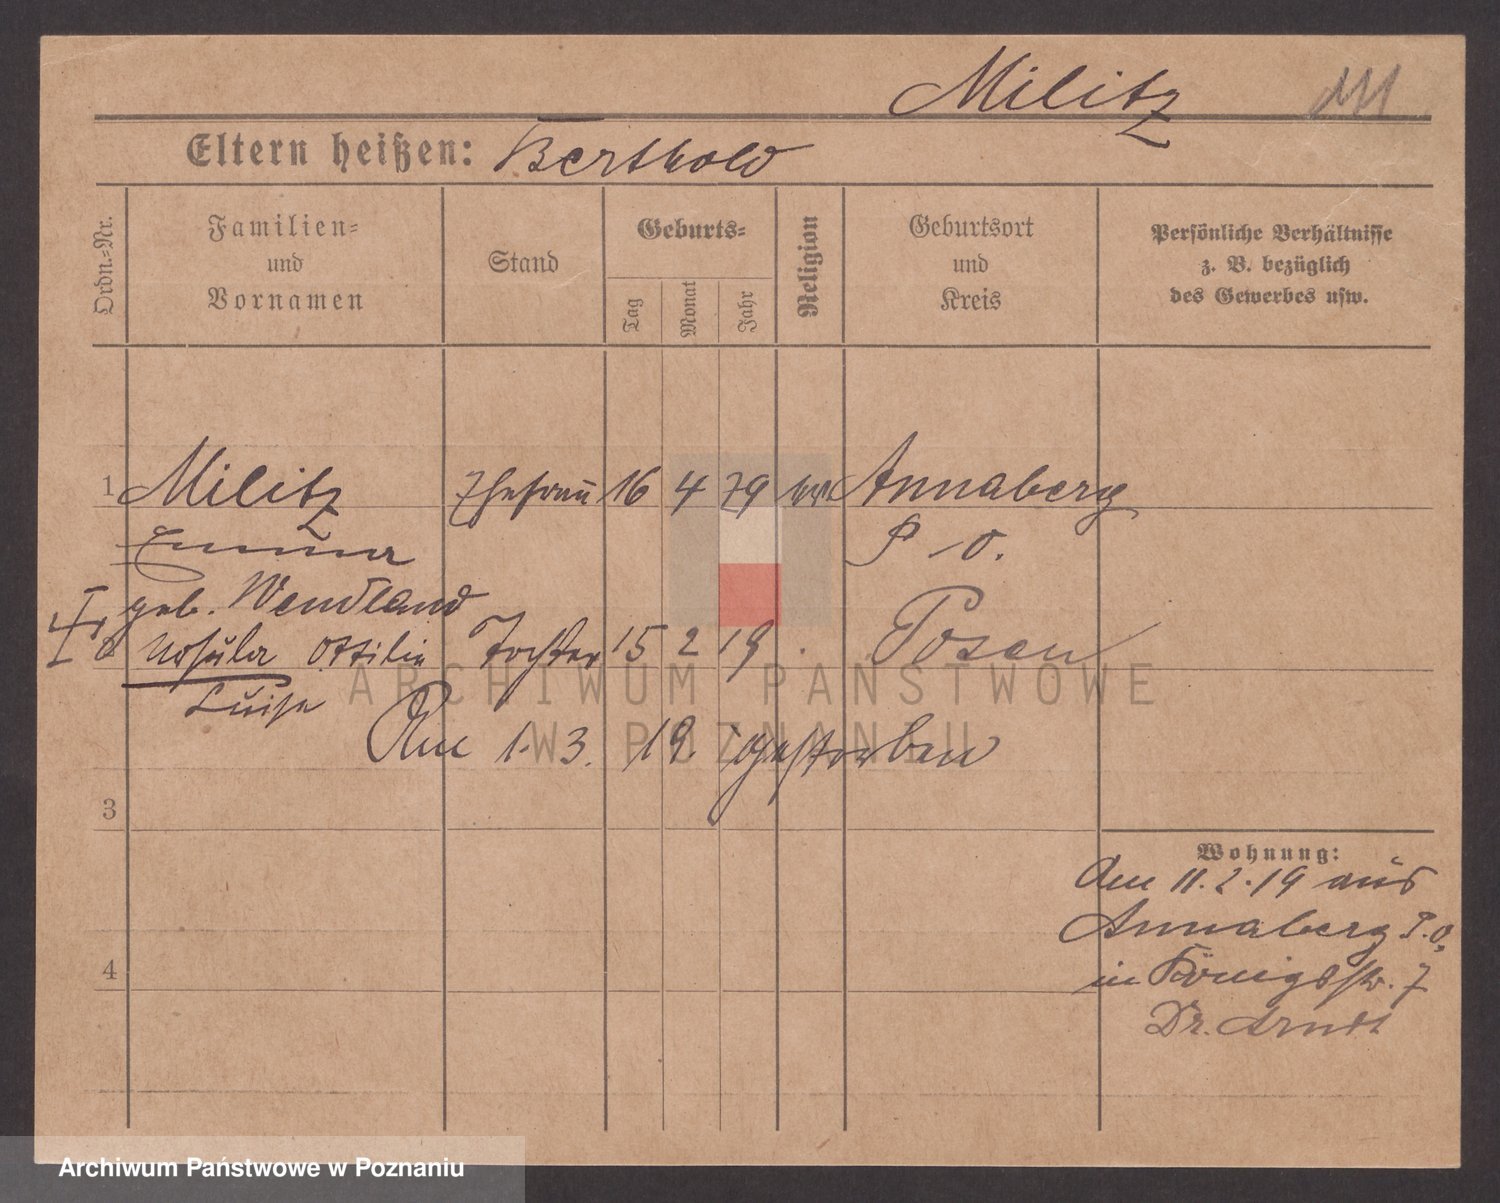 Militz
Eltern heißen: Berthold
Ordn.-Nr.
Familien- und Vornamen
Stand
Geburts-
Tag
Monat
Jahr
Religion
Geburtsort und Kreis
Persönliche Verhältnisse z. B. bezüglich des Gewerbes usw.
1 Militz Ehefrau 16 4 79 ev. Annaberg
Emma P. O.
geb. Wendland
Ottilie Tochter 15 2 19 Posen
Luise
Am 1. 3. 19 gestorben
3
Wohnung:
Am 11. 2. 19 aus
Annaberg P. O.
in Königsstr. 7
Dr. Arndt
4
ARCHIWUM PAŃSTWOWE
W POZNANIU
Archiwum Państwowe w Poznaniu